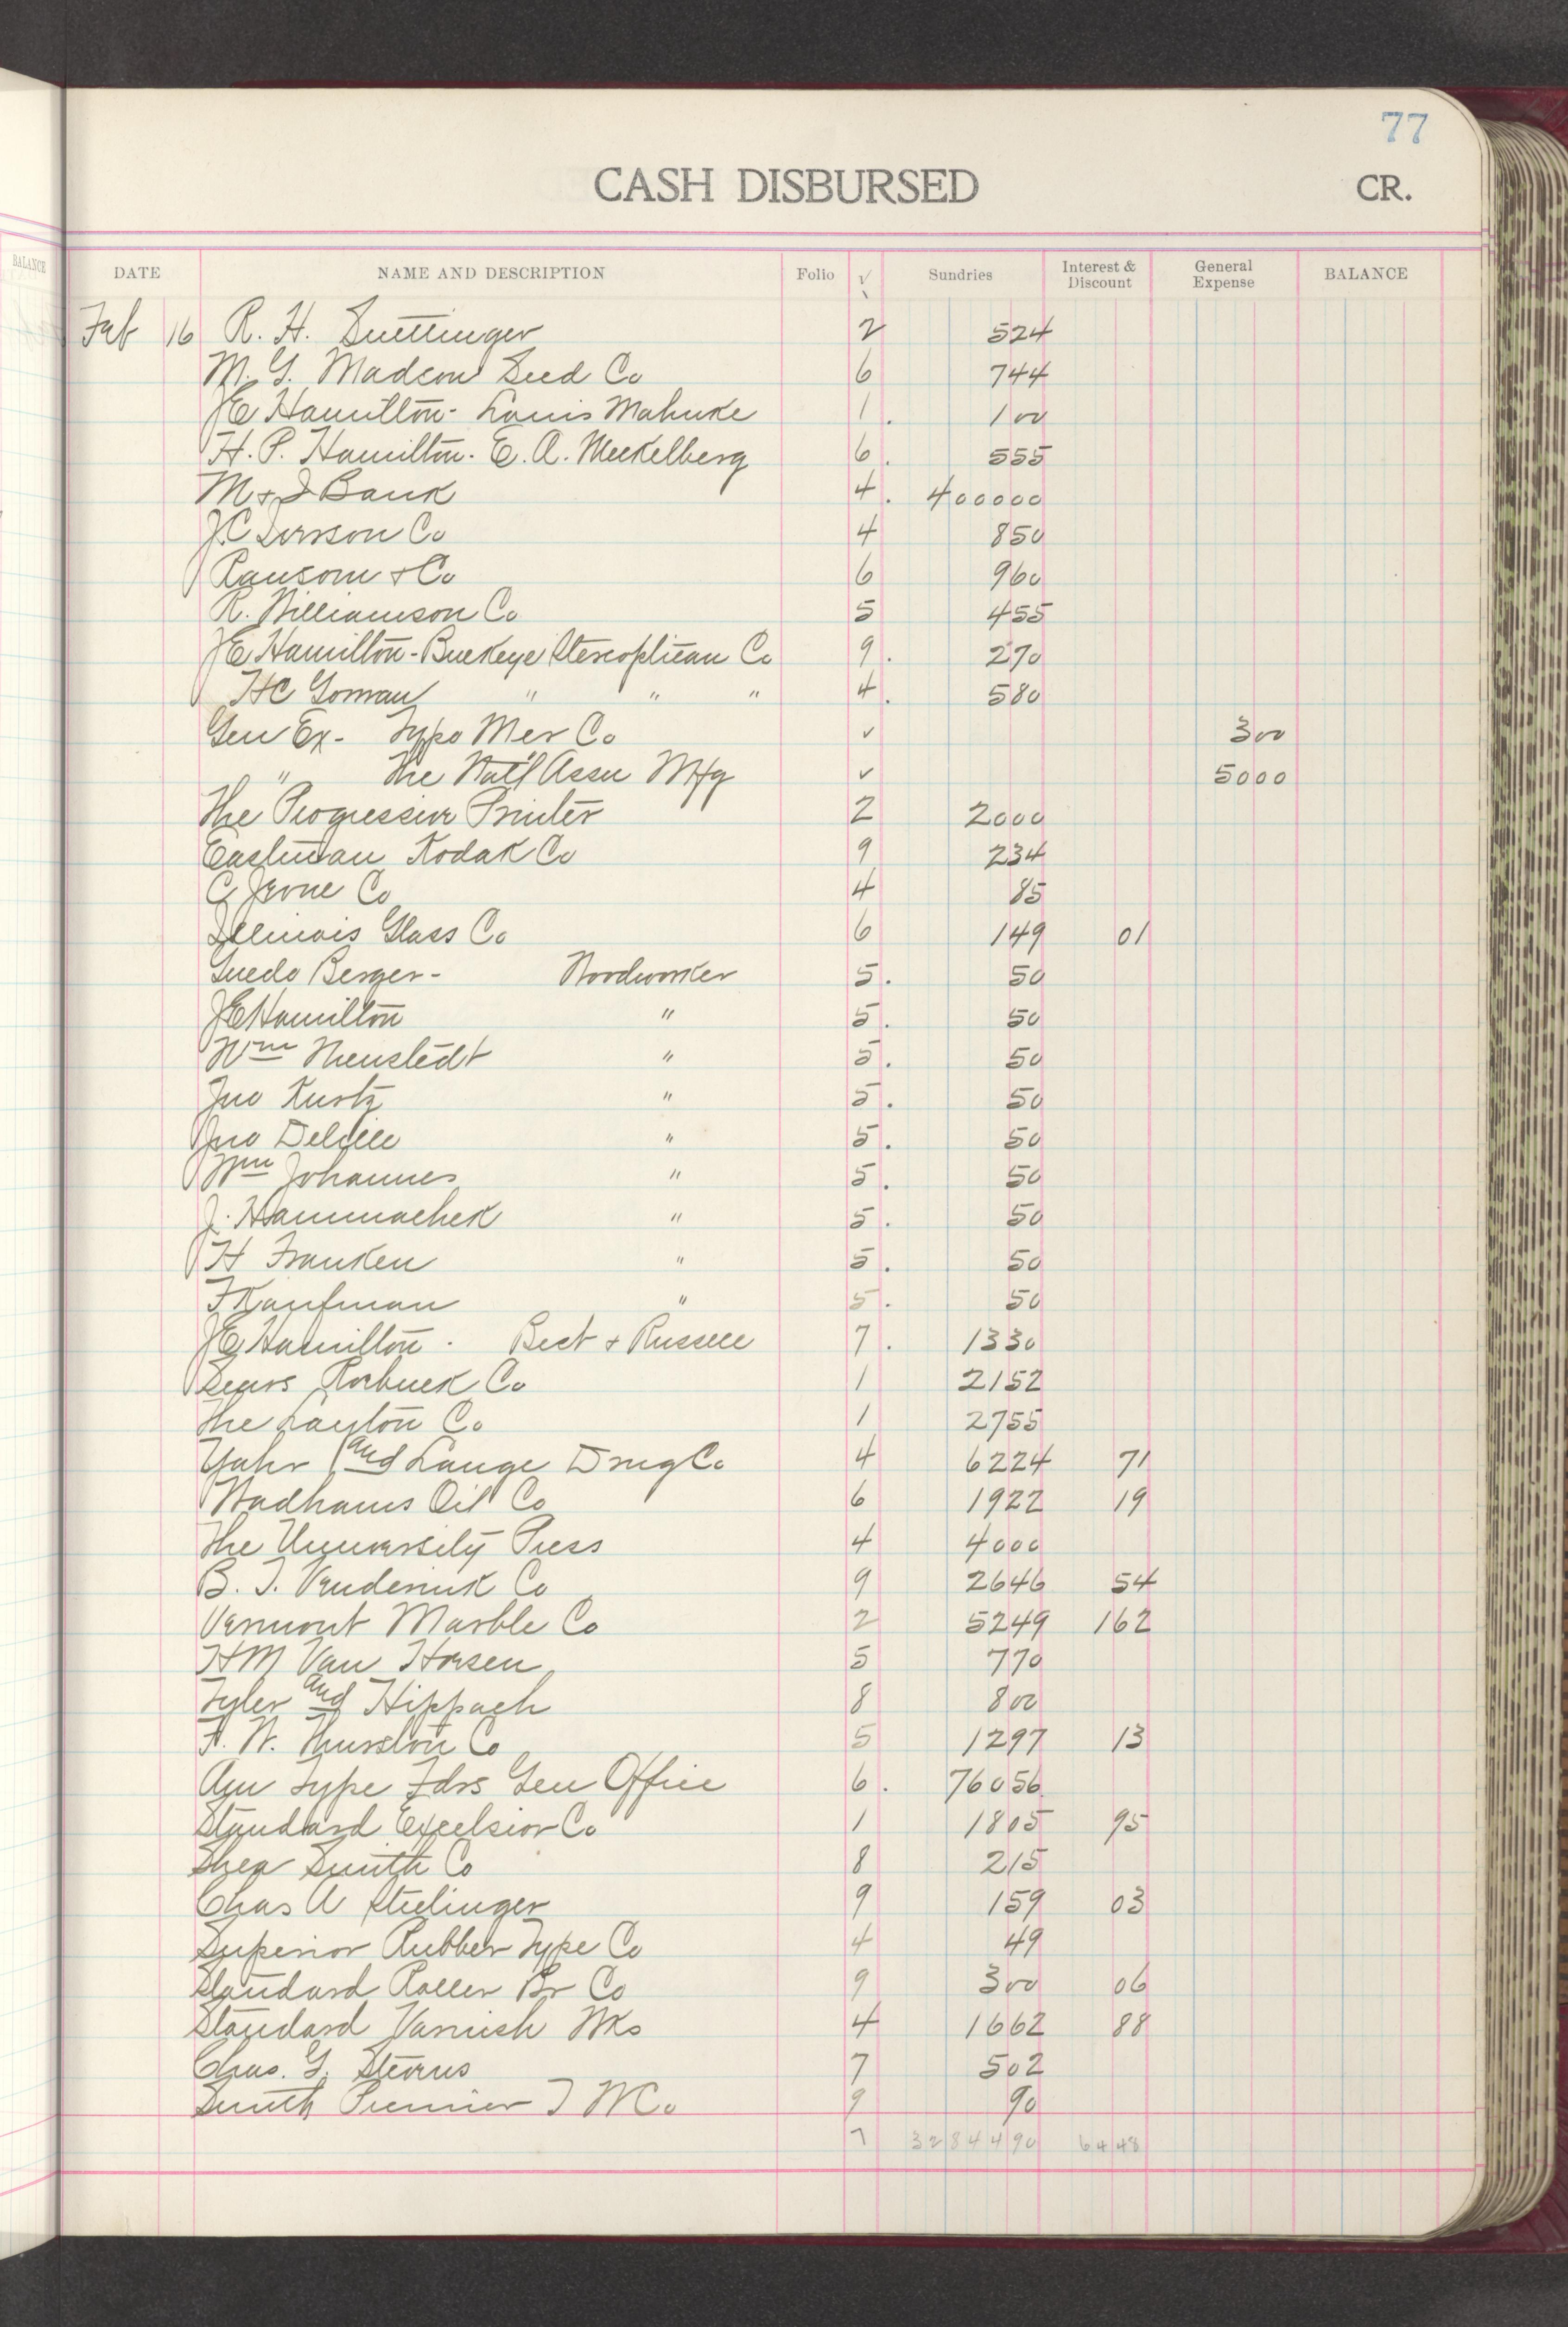 77
CASH DISBURSED CR.
BALANCE
DATE NAME AND DESCRIPTION Folio √ Sundries Interest & Discount General Expense BALANCE
Feb 16 R. H. Suettinger 2 524
M. G. Madson Seed Co 6 744
JE Hamilton - Louis Mahnke 1 . 100
H. P. Hamilton - E. A. Meckelberg 6 . 555
M & S Bank 4 . 400000
J.C. Co 4 850
Ransom & Co 6 960
R. Williamson Co 5 455
JE Hamilton - Buckeye Stereoptican Co 9 . 270
HC Gorman " " " 4 . 580
Gen Ex - Typo Mer Co ✓ 300
" The Nat'l Assn Mfg ✓ 5000
The Progressive Printer 2 2000
Eastman Kodak Co 9 234
C Jevne Co 4 85
Illinois Glass Co 6 149 01
Guedo Berger - Woodworker 5 . 50
JE Hamilton " 5 . 50
Wm Nienstedt " 5 . 50
Jno Kurtz " 5 . 50
Jno " 5 . 50
Wm Johannes " 5 . 50
J. Hammachek " 5 . 50
H Franken " 5 . 50
F Kaufman " 5 . 50
JE Hamilton - Bect & Russell 7 . 1330
Sears Roebuck Co 1 2152
The Layton Co 1 2755
Yahr and Lange Drug Co 4 6224 71
Wadhams Oil Co 6 1922 19
The University Press 4 4000
B. F. Co 9 2646 54
Vermont Marble Co 2 5249 162
HM Van Hoesen 5 770
Tyler and Hippach 8 800
F. W. Thurston Co 5 1297 13
Am Type Fdrs Gen Office 6 . 76056
Standard Excelsior Co 1 1805 95
Shea Smith Co 8 215
Chas A Strelinger 9 159 03
Superior Rubber Type Co 4 49
Standard Roller Br Co 9 300 06
Standard Varnish Wks 4 1662 88
Chas. G. Stevens 7 502
Smith Premier T W Co 9 90
7 3284490 6448